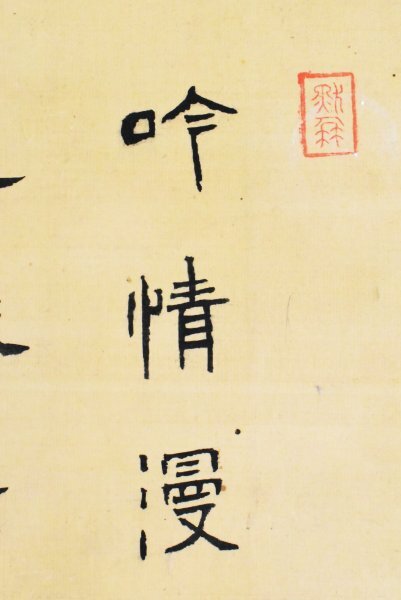 吟情漫